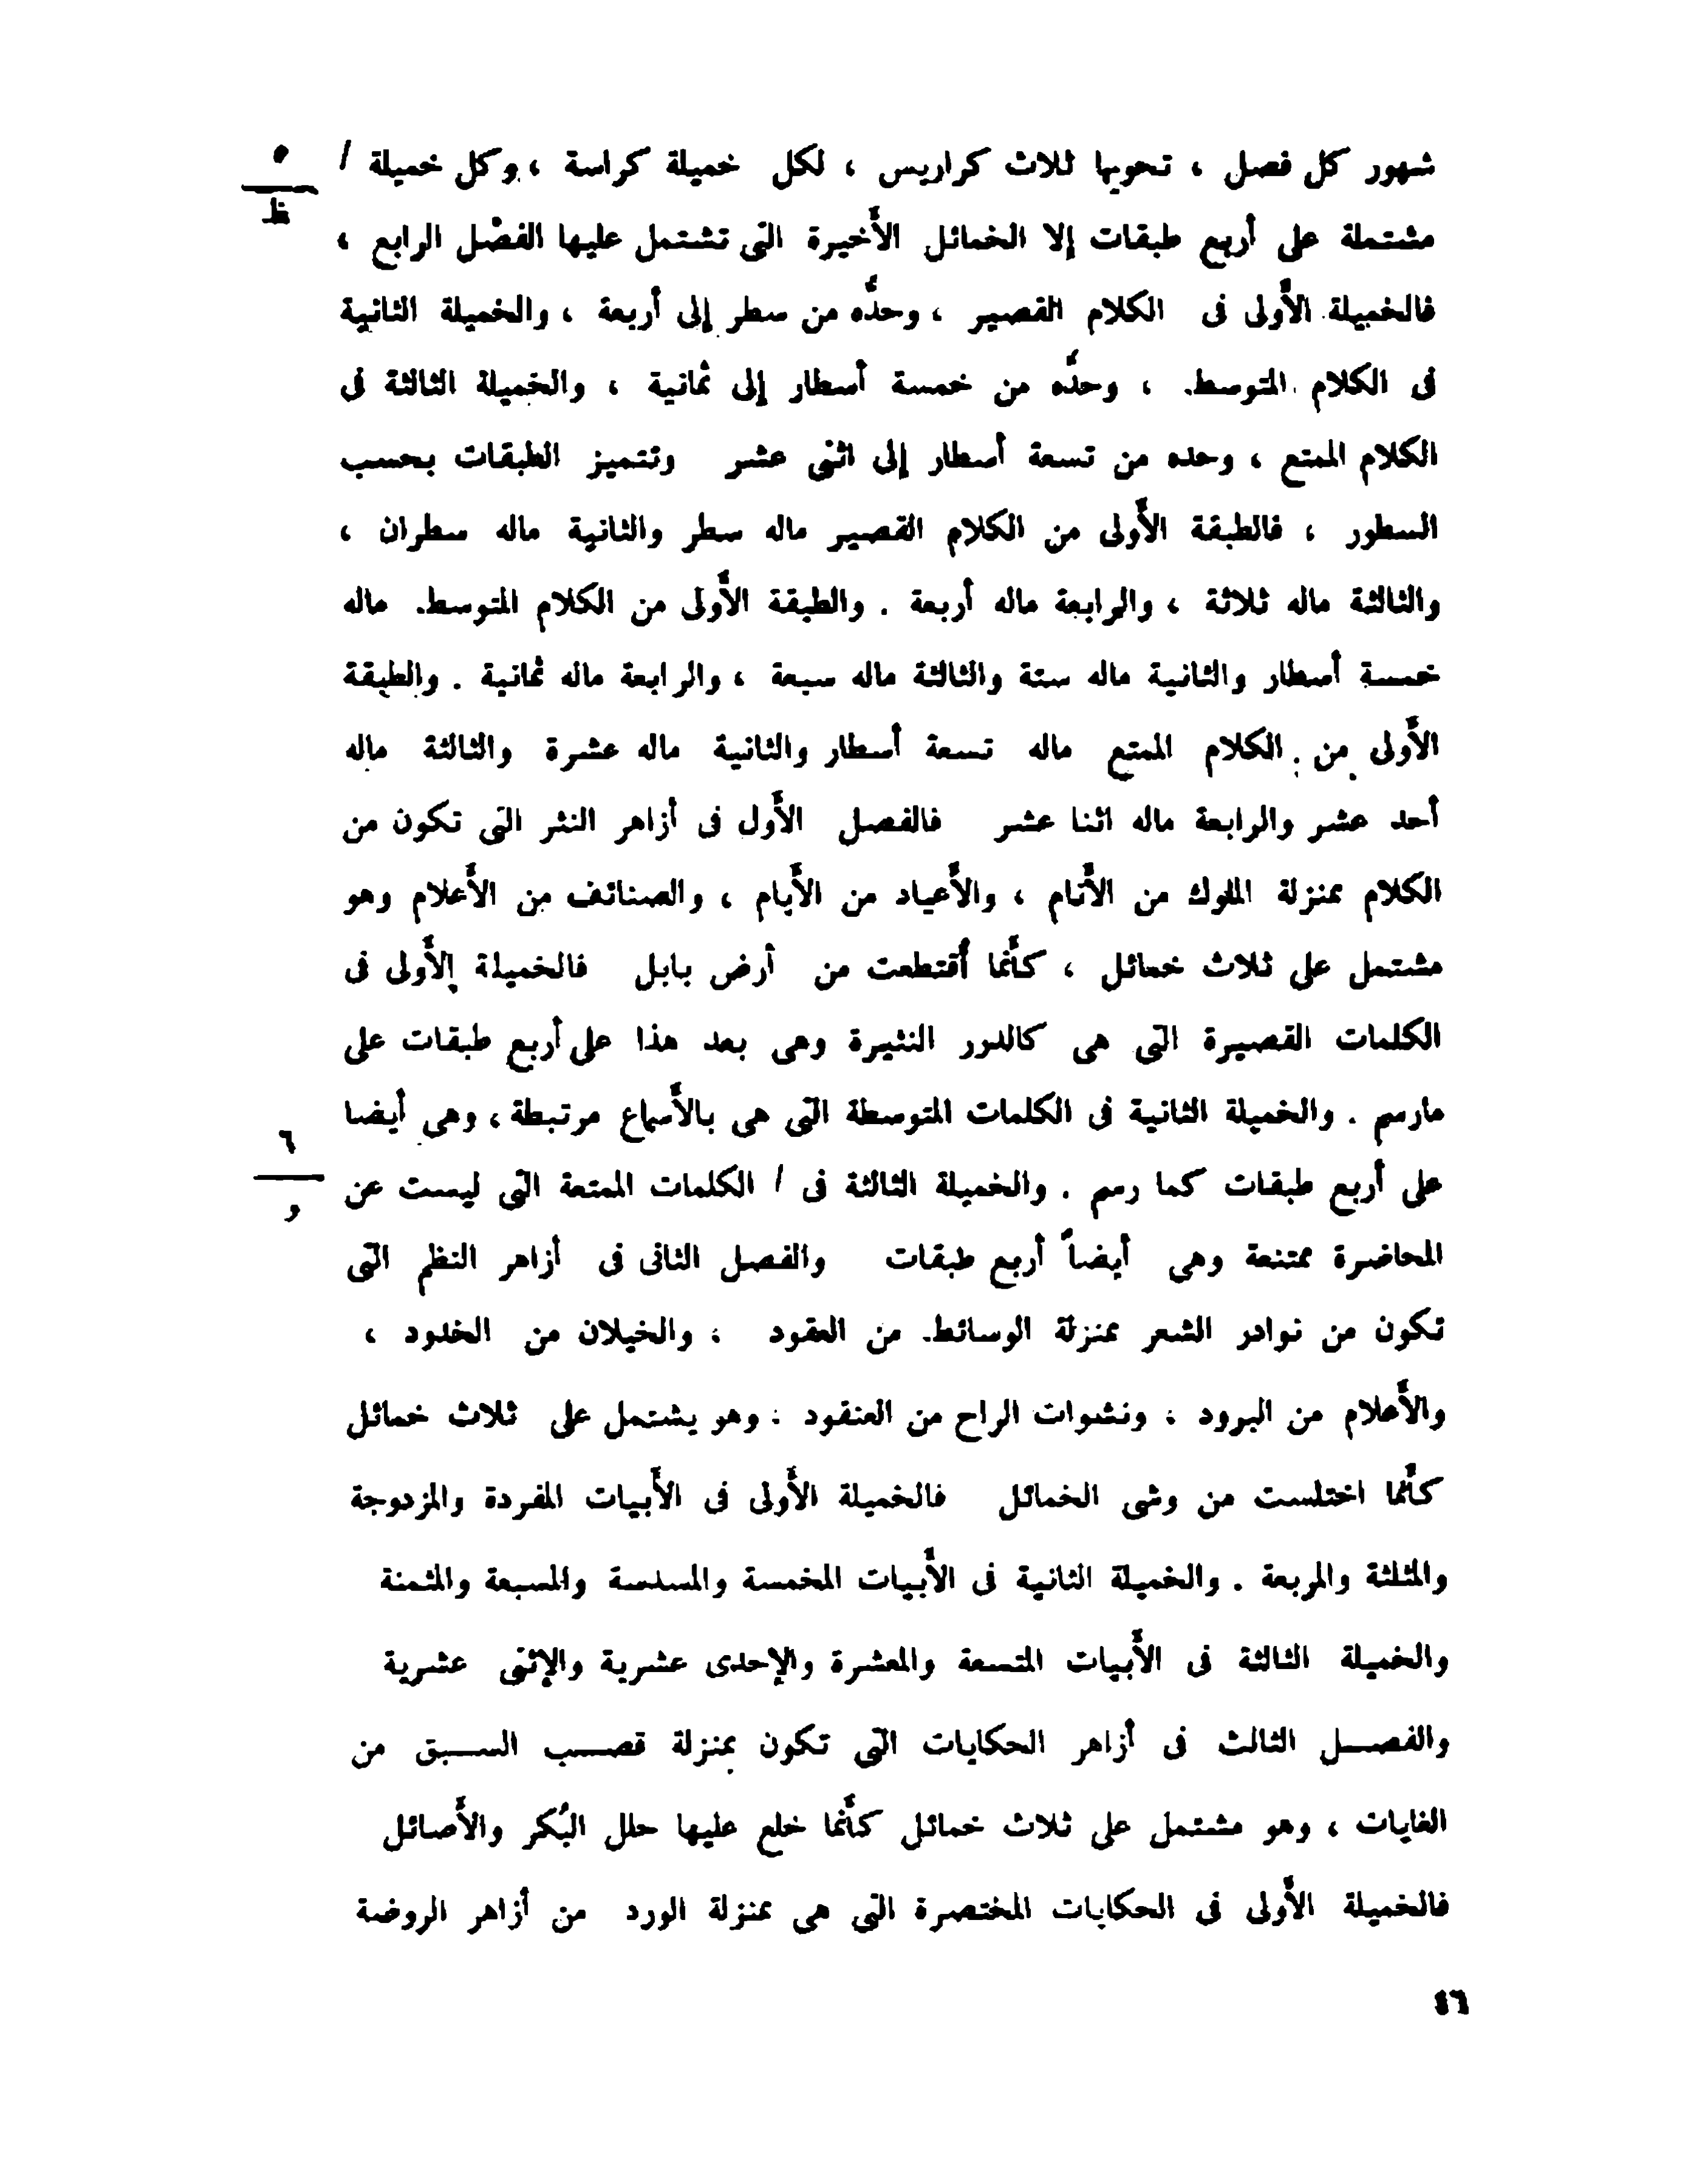 شهور كل فصل ، تحويها ثلاث كراريس ، لكل خميلة كراسة ، وكل خميلة /
٥
ظ
مشتملة على أربع طبقات إلا الخمائل الأخيرة التى تشتمل عليها الفصل الرابع ،
فالخميلة الأولى فى الكلام القصير ، وحدّه من سطر إلى أربعة ، والخميلة الثانية
فى الكلام المتوسط ، وحدّه من خمسة أسطار إلى ثمانية ، والخميلة الثالثة فى
الكلام الممتع ، وحده من تسعة أسطار إلى اثنى عشر وتتميز الطبقات بحسب
السطور ، فالطبقة الأولى من الكلام القصير ماله سطر والثانية ماله سطران ،
والثالثة ماله ثلاثة ، والرابعة ماله أربعة . والطبقة الأولى من الكلام المتوسط ماله
خمسة أسطار والثانية ماله ستة والثالثة ماله سبعة ، والرابعة ماله ثمانية . والطبقة
الأولى من الكلام الممتع ماله تسعة أسطار والثانية ماله عشرة والثالثة ماله
أحد عشر والرابعة ماله اثنا عشر فالفصل الأول فى أزاهر النثر التى تكون من
الكلام بمنزلة الملوك من الأنام ، والأعياد من الأيام ، والصنائف من الأعلام وهو
مشتمل على ثلاث خمائل ، كأنما أقتطعت من أرض بابل فالخميلة الأولى فى
الكلمات القصيرة التى هى كالدرر النثيرة وهى بعد هذا على أربع طبقات على
مارسم . والخميلة الثانية فى الكلمات المتوسطة التى هى بالأسماع مرتبطة ، وهى أيضا
٦
و
على أربع طبقات كما رسم . والخميلة الثالثة فى / الكلمات الممتعة التى ليست عن
المحاضرة ممتنعة وهى أيضاً أربع طبقات والفصل الثانى فى أزاهر النظم التى
تكون من نوادر الشعر بمنزلة الوسائط من العقود ، والخيلان من الخدود ،
والأعلام من البرود ، ونشوات الراح من العنقود ، وهو يشتمل على ثلاث خمائل
كأنما اختلست من وشى الخمائل فالخميلة الأولى فى الأبيات المفردة والمزدوجة
والمثلثة والمربعة . والخميلة الثانية فى الأبيات المخمسة والمسدسة والمسبعة والمثمنة
والخميلة الثالثة فى الأبيات المتسعة والمعشرة والإحدى عشرية والإثنى عشرية
والفصل الثالث فى أزاهر الحكايات التى تكون بمنزلة قصب السبق من
الغايات ، وهو مشتمل على ثلاث خمائل كأنما خلع عليها حلل البُكر والأصائل
فالخميلة الأولى فى الحكايات المختصرة التى هى بمنزلة الورد من أزاهر الروضة
٤٦